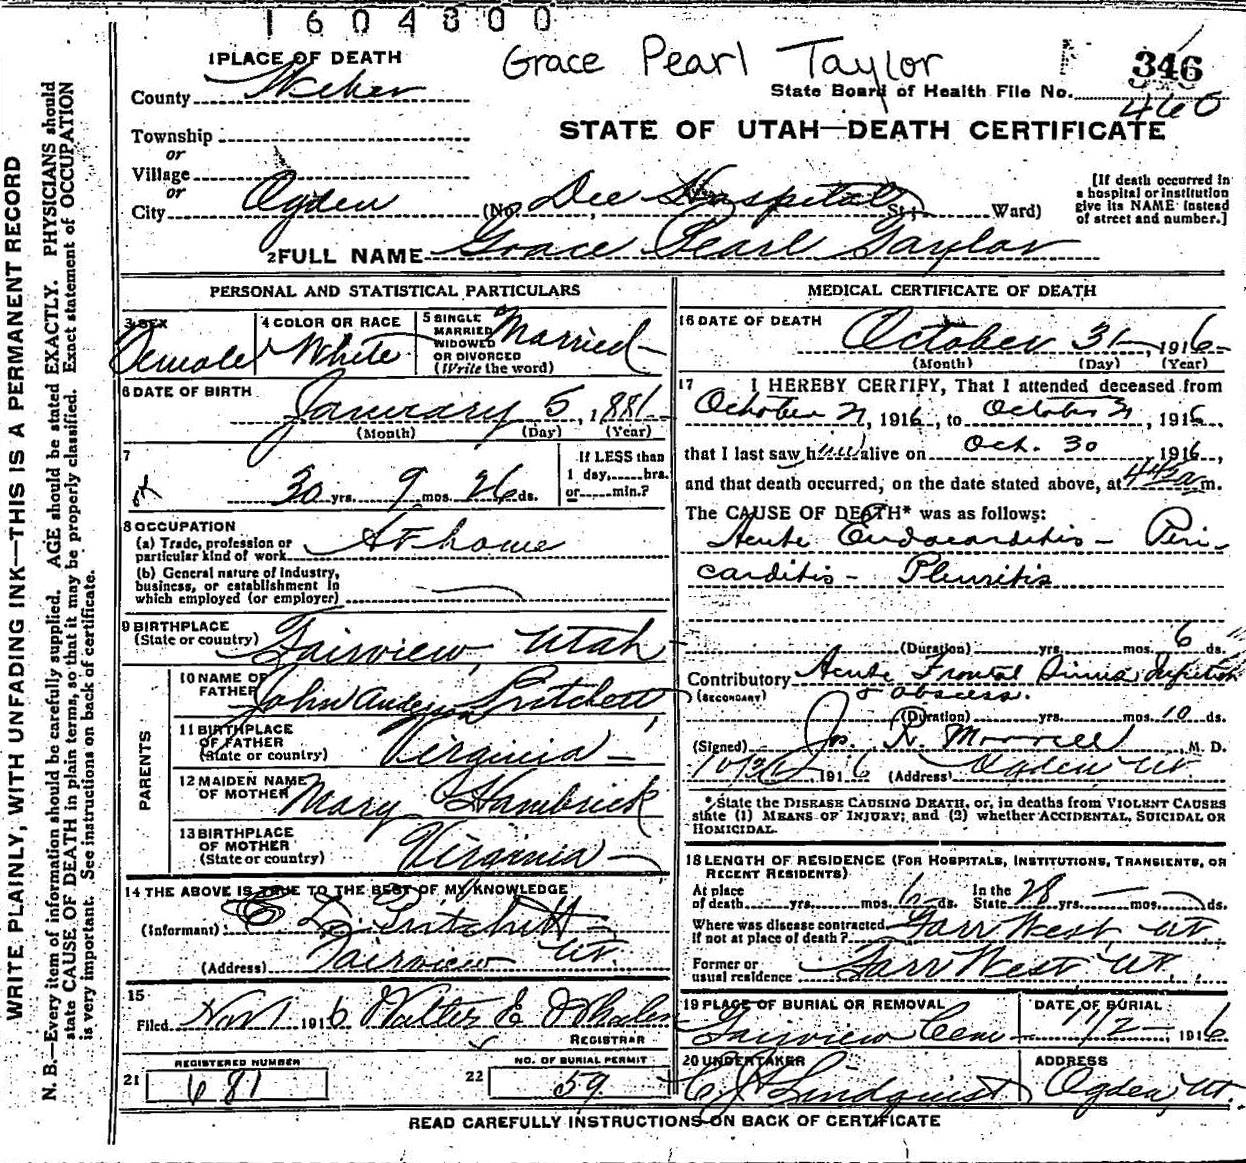 1604800
Grace Pearl Taylor
346
460
State Board of Health File No.
STATE OF UTAH—DEATH CERTIFICATE
1 PLACE OF DEATH
County Weber
Township
or
Village
or
City Ogden (No. Dee Hospital St.; Ward)
[If death occurred in
a hospital or institution
give its NAME instead
of street and number.]
2 FULL NAME Grace Pearl Taylor
PERSONAL AND STATISTICAL PARTICULARS
3 SEX Female
4 COLOR OR RACE White
5 SINGLE
MARRIED
WIDOWED
OR DIVORCED
(Write the word) Married
6 DATE OF BIRTH January 5, 1881
(Month) (Day) (Year)
7
30 yrs. 9 mos. 26 ds.
If LESS than
1 day, hrs.
or min.?
8 OCCUPATION
(a) Trade, profession or
particular kind of work At home
(b) General nature of industry,
business, or establishment in
which employed (or employer)
9 BIRTHPLACE
(State or country) Fairview, Utah
PARENTS
10 NAME OF
FATHER John Anderson Pritchett
11 BIRTHPLACE
OF FATHER
(State or country) Virginia
12 MAIDEN NAME
OF MOTHER Mary Hambrick
13 BIRTHPLACE
OF MOTHER
(State or country) Virginia
14 THE ABOVE IS TRUE TO THE BEST OF MY KNOWLEDGE
(Informant) Pritchett
(Address) Fairview Ut.
15
Filed Nov 1 1916 Walter E Whalen
REGISTRAR
REGISTERED NUMBER
21 681
NO. OF BURIAL PERMIT
22 59
MEDICAL CERTIFICATE OF DEATH
16 DATE OF DEATH October 31, 1916
(Month) (Day) (Year)
17 I HEREBY CERTIFY, That I attended deceased from
October 21, 1916, to October 31, 1916,
that I last saw h alive on Oct. 30, 1916,
and that death occurred, on the date stated above, at m.
The CAUSE OF DEATH* was as follows:
Acute Endocarditis - Peri-
carditis - Pleuritis
(Duration) yrs. mos. 6 ds.
Contributory Acute Frontal Sinus Infection
(SECONDARY) & abscess.
(Duration) yrs. mos. 10 ds.
(Signed) Jos. R. Morrell, M. D.
10/31 1916 (Address) Ogden Ut.
* State the DISEASE CAUSING DEATH, or, in deaths from VIOLENT CAUSES
state (1) MEANS OF INJURY; and (2) whether ACCIDENTAL, SUICIDAL OR
HOMICIDAL.
18 LENGTH OF RESIDENCE (FOR HOSPITALS, INSTITUTIONS, TRANSIENTS, OR
RECENT RESIDENTS)
At place
of death yrs. mos. ds.
In the
State 28 yrs. mos. ds.
Where was disease contracted
if not at place of death? Farr West, Ut
Former or
usual residence Farr West Ut.
19 PLACE OF BURIAL OR REMOVAL
Fairview Cem
DATE OF BURIAL
11/2 1916
20 UNDERTAKER
C J Lindquist
ADDRESS
Ogden, Ut.
READ CAREFULLY INSTRUCTIONS ON BACK OF CERTIFICATE
WRITE PLAINLY, WITH UNFADING INK—THIS IS A PERMANENT RECORD
N. B.—Every item of information should be carefully supplied. AGE should be stated EXACTLY. PHYSICIANS should
state CAUSE OF DEATH in plain terms, so that it may be properly classified. Exact statement of OCCUPATION
is very important. See instructions on back of certificate.